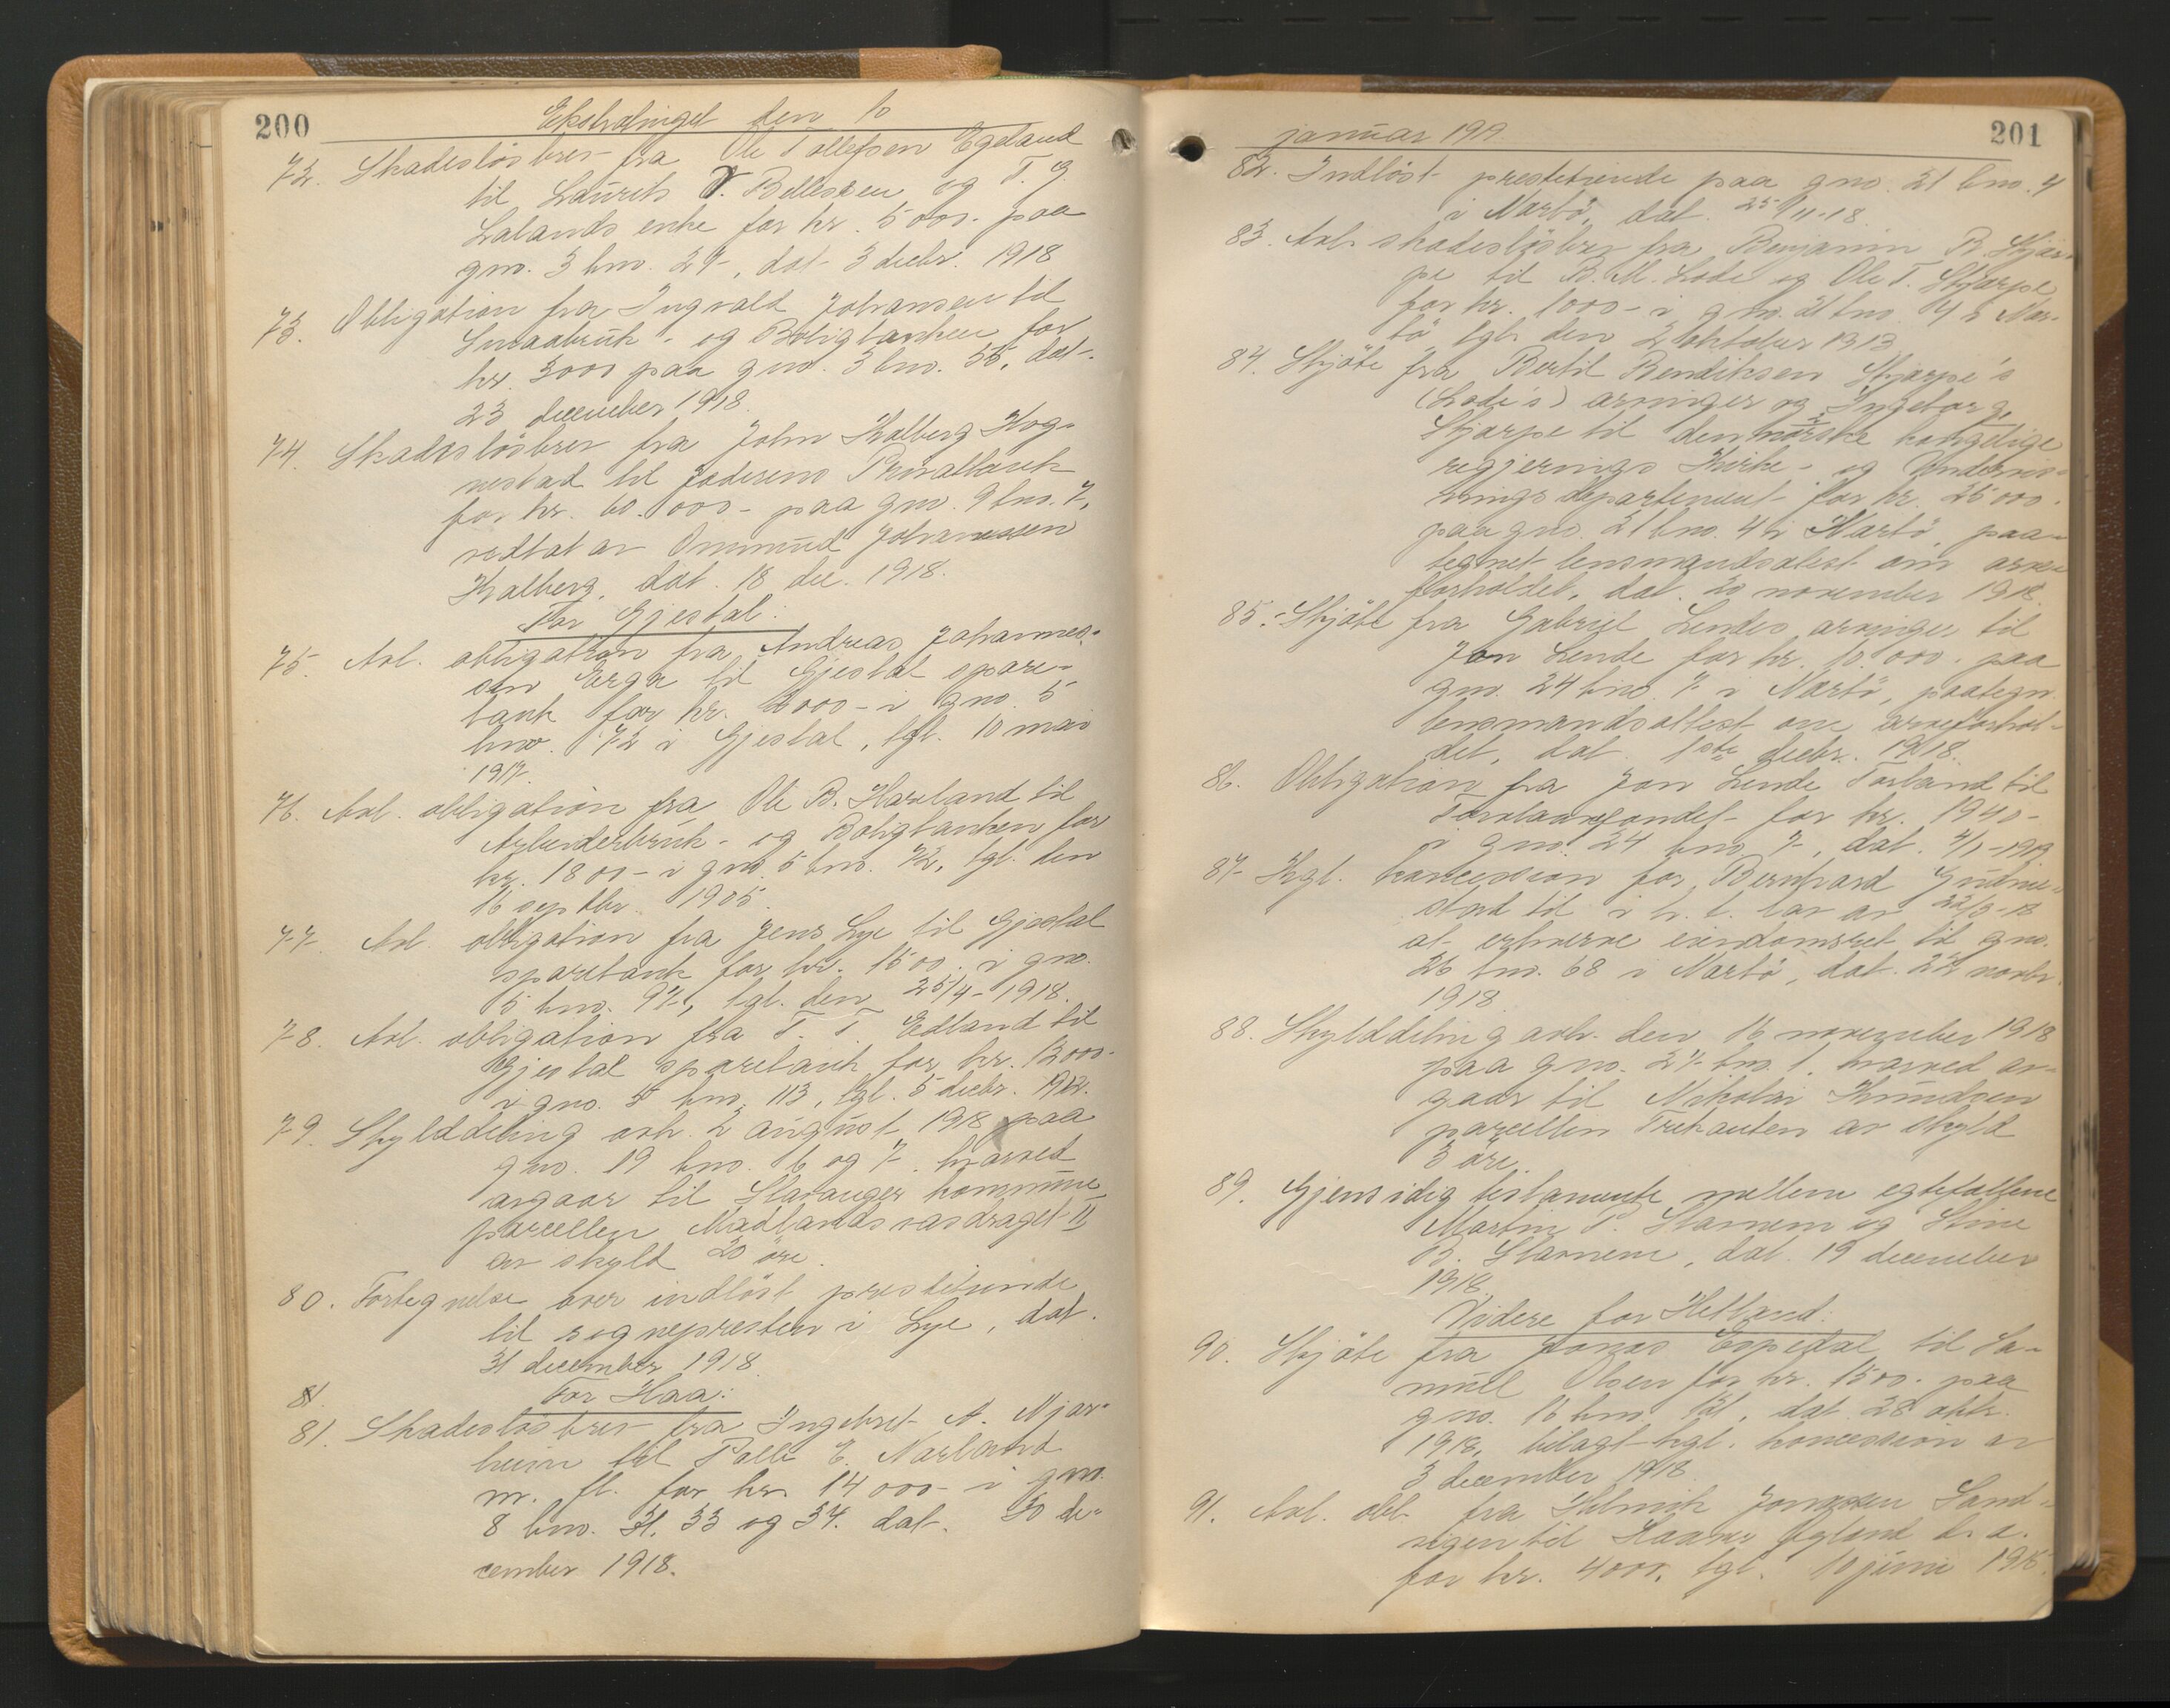 200
Ekstratinget den 10
72. Skadeslösbrev fra Ole Tollefsen Egeland
til Laurits V. Bellesen og T. G.
Lalands enke for kr. 5000.- paa
gno. 3 bno. 27, dat. 3 decbr. 1918
73. Obligation fra Ingvald Johansen til
Smaabruk- og Boligbanken for
kr. 3000 paa gno. 3 bno. 55, dat.
23 december 1918.
74. Skadeslösbrev fra John Kalberg Hog-
nestad til Jæderens Privatbank
for kr. 60.000- paa gno. 9 bno. 7,
vedtat av Ommund Johannessen
Kalberg, dat. 18 dec. 1918.
For Gjestal:
75. Avl. obligation fra Andreas Johannes-
sen Erga til Gjestal spare-
bank for kr. 2000- i gno. 5
bno. 72 i Gjestal, tgl. 10 mai
1917.
76. Avl. obligation fra Ole B. Haveland til
Arbeiderbruk- og Boligbanken for
kr. 1800- i gno. 5 bno. 72, tgl. den
16 septbr. 1905.
77. Avl. obligation fra Jens Lye til Gjestal
sparebank for kr. 1500.- i gno.
5 bno. 97, tgl. den 25/4-1918.
78. Avl. obligation fra T. T. Edland til
Gjestal sparebank for kr. 12000-
i gno. 5 bno. 113, tgl. 5 decbr. 1912.
79. Skylddeling avh. 2 august 1918 paa
gno. 19 bno. 6 og 7, hvorved
avgaar til Stavanger kommune
parcellen Madlandsvasdraget II
av skyld 20 öre.
80. Fortegnelse over indlöst prestetiende
til sognepresten i Lye, dat.
31 december 1918.
81.
For Haa:
81. Skadeslösbrev fra Ingebret A. Njær-
heim til Palle E. Nærland
m. fl. for kr. 14000- i gno.
8 bno. 31, 33 og 34. dat. 30 de-
cember 1918.
januar 1919.
201
82. Indlöst prestetiende paa gno. 21 bno. 4
i Nærbö, dat. 25/11-18.
83. Avl. skadeslösbrev fra Benjamin B. Skjær-
pe til B. M. Lode og Ole T. Skjærpe
for kr. 1000- i gno. 21 bno. 4 i Nær-
bö, tgl. den 2 oktober 1913.
84. Skjöte fra Bertil Bendiksen Skjærpe's
(Lode's) arvinger og Ingeborg
Skjærpe til den norske kongelige
regjerings Kirke- og Undervis-
ningsdepartement for kr. 25000.-
paa gno. 21 bno. 4 i Nærbö, paa-
tegnet lensmandsatest om arve-
forholdet, dat. 20 november 1918.
85. Skjöte fra Gabriel Lendes arvinger til
Jon Lende for kr. 10.000.- paa
gno. 24 bno. 7 i Nærbö, paategn.
lensmandsattest om arveforhol-
det, dat. 1ste decbr. 1918.
86. Obligation fra Jon Lende Torland til
Torvlaanefondet for kr. 1940-
i gno. 24 bno. 7, dat. 4/1-1919.
87. Kgl. koncession for Bernhard Gudme-
stad til i h. t. lov av 22/3-18
at erhverve eiendomsret til gno.
26 bno. 68 i Nærbö, dat. 22 novbr.
1918.
88. Skylddeling avh. den 16 november 1918
paa gno. 27 bno. 1, hvorved av-
gaar til Nikolai Knudsen
parcellen Trekanten av skyld
3 öre.
89. Gjensidig testamente mellem egtefællene
Martin P. Stavnem og Stine
B. Stavnem, dat. 19 december
1918.
Videre for Hetland:
90. Skjöte fra Jonas Espedal til Sa-
muel Olsen for kr. 1500.- paa
gno. 16 bno. 121, dat. 28 oktbr.
1918, bilagt kgl. koncession av
3 december 1918.
91. Avl. obl. fra Helmik Jonassen Sand-
vigen til Egland d. a.
for kr. 4000, tgl. 10 juni 1915.